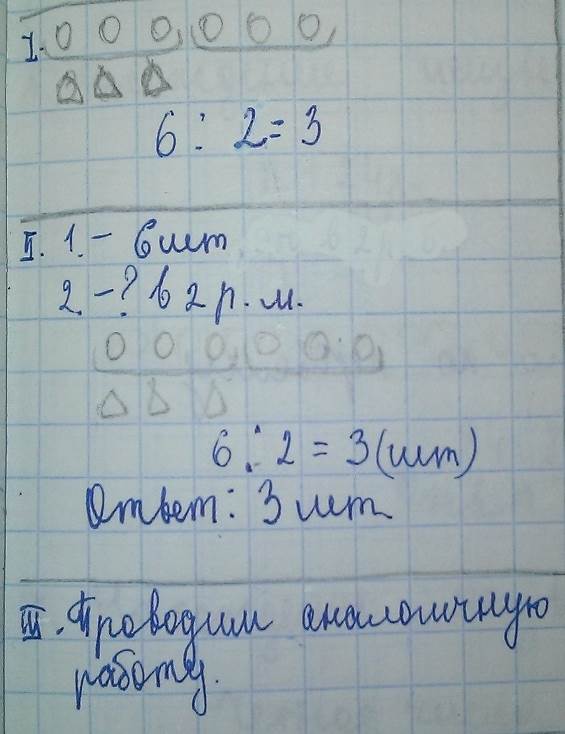 I.
6 : 2 = 3
II. 1. – 6 шт.
2. – ? в 2 р. м.
6 : 2 = 3 (шт)
Ответ: 3 шт
III. Проводим аналогичную
работу.